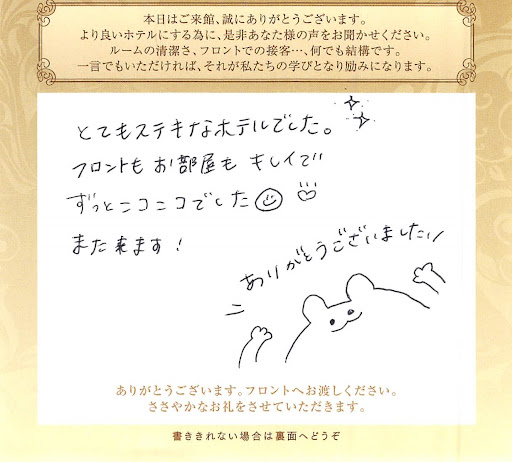 本日はご来館、誠にありがとうございます。
より良いホテルにする為に、是非あなた様の声をお聞かせください。
ルームの清潔さ、フロントでの接客…、何でも結構です。
一言でもいただければ、それが私たちの学びとなり励みになります。
とてもステキなホテルでした。
フロントもお部屋もキレイで
ずっとニコニコでした
また来ます!
ありがとうございました!
ありがとうございます。フロントへお渡しください。
ささやかなお礼をさせていただきます。
書ききれない場合は裏面へどうぞ